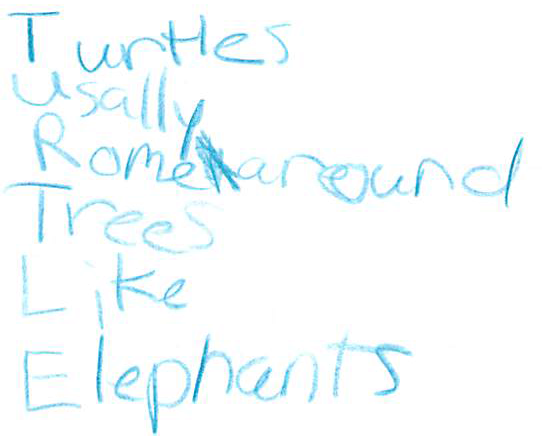 Turtles
Usally
Rome around
Trees
Like
Elephants